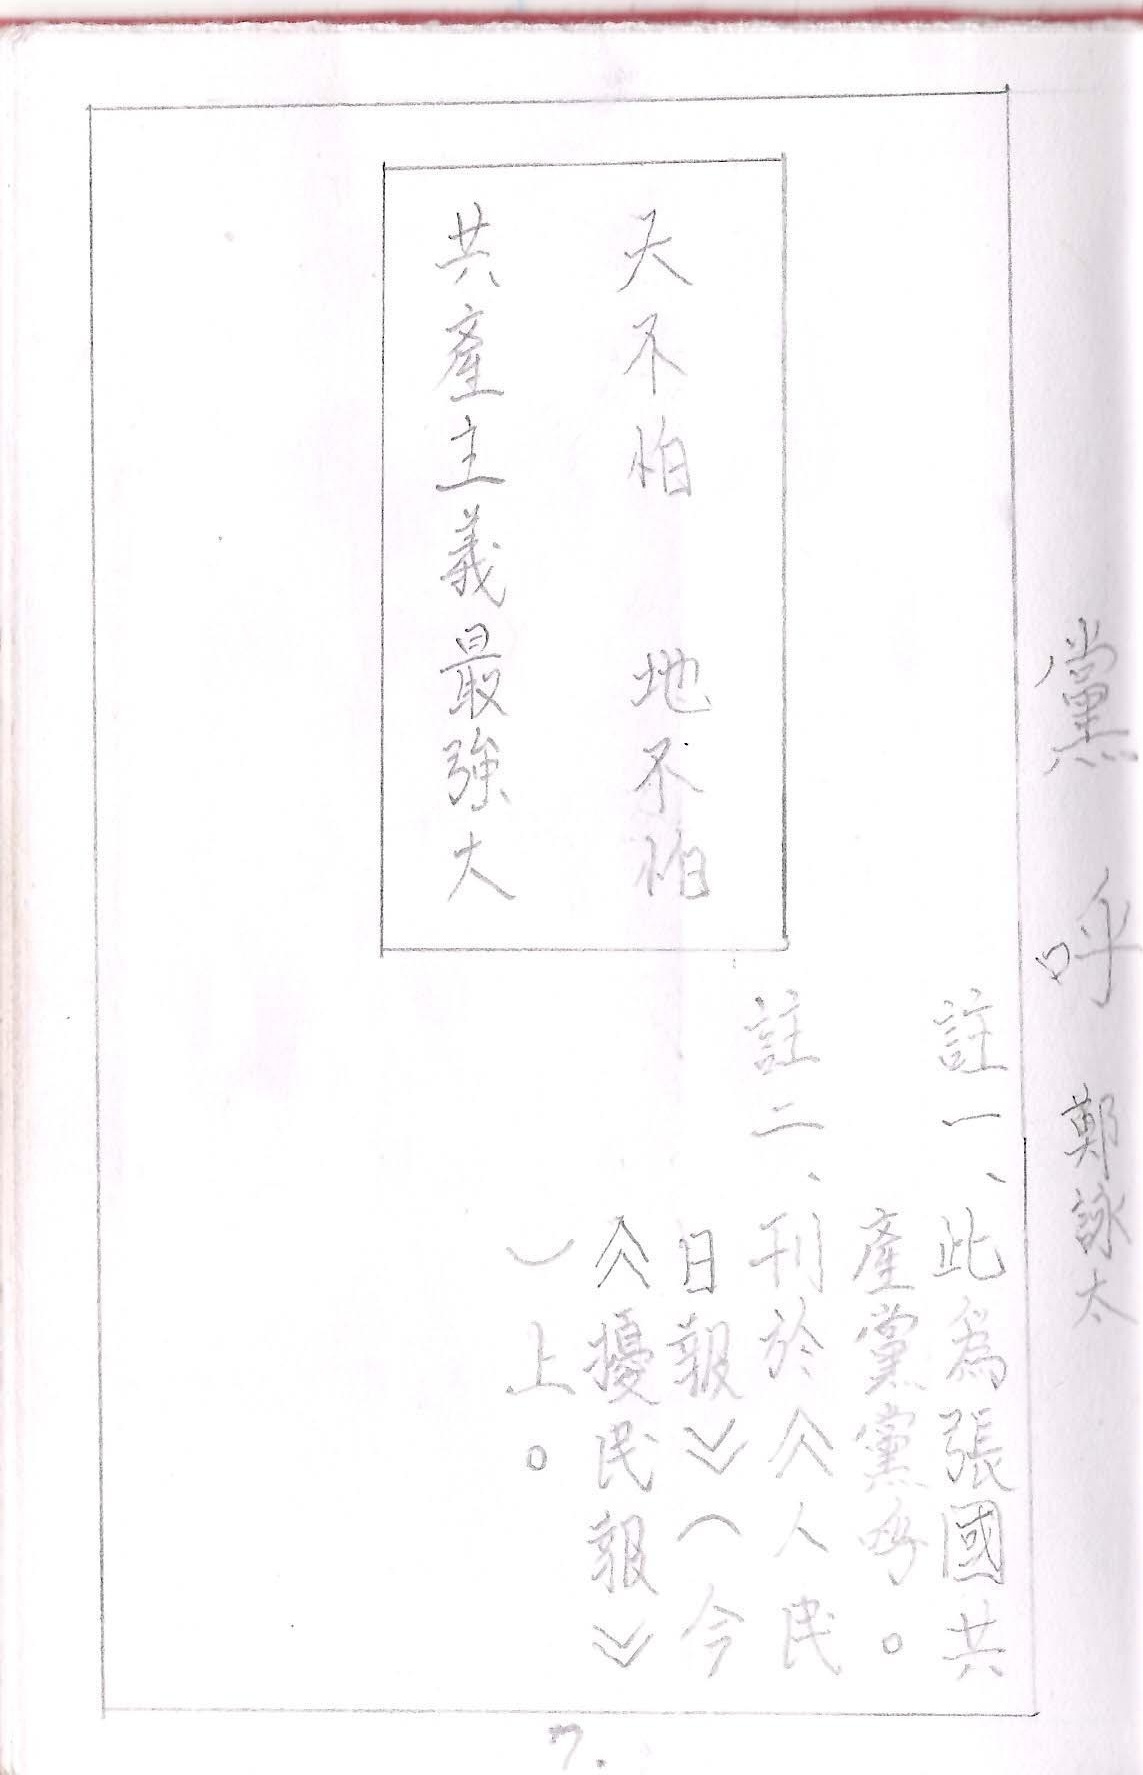 黨 呼 鄭詠太
天不怕 地不怕
共產主義最強大
註一、此為張國共
產黨黨呼。
註二、刊於《人民
日報》(今
《擾民報》
)上。
7.